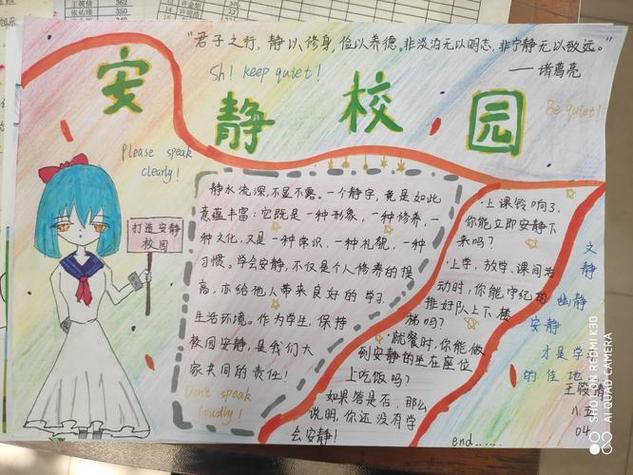 "君子之行，静以修身，俭以养德。非淡泊无以明志，非宁静无以致远。"
——诸葛亮
Sh! keep quiet!
安静校园
Be quiet!
Please speak
clearly!
打造安静
校园
静水流深，不显不露。一个静字，竟是如此
意蕴丰富：它既是一种形象，一种修养，一
种文化，又是一种常识，一种礼貌，一种
习惯。学会安静，不仅是个人修养的提
高，亦给他人带来良好的学习
生活环境。作为学生，保持
校园安静，是我们大
家共同的责任！
Don't speak
loudly!
·上课铃响了，
你能立即安静下
来吗？
·上学、放学、课间活
动时，你能守纪的
排好队上下楼
梯吗？
·就餐时，你能做
到安静的坐在座位
上吃饭吗？
如果答是否，那么
说明，你还没有学
会安静！
文静
幽静
安静
才是学
的佳地
end......
王
八五
04
SHOT ON REDMI K30
AI QUAD CAMERA